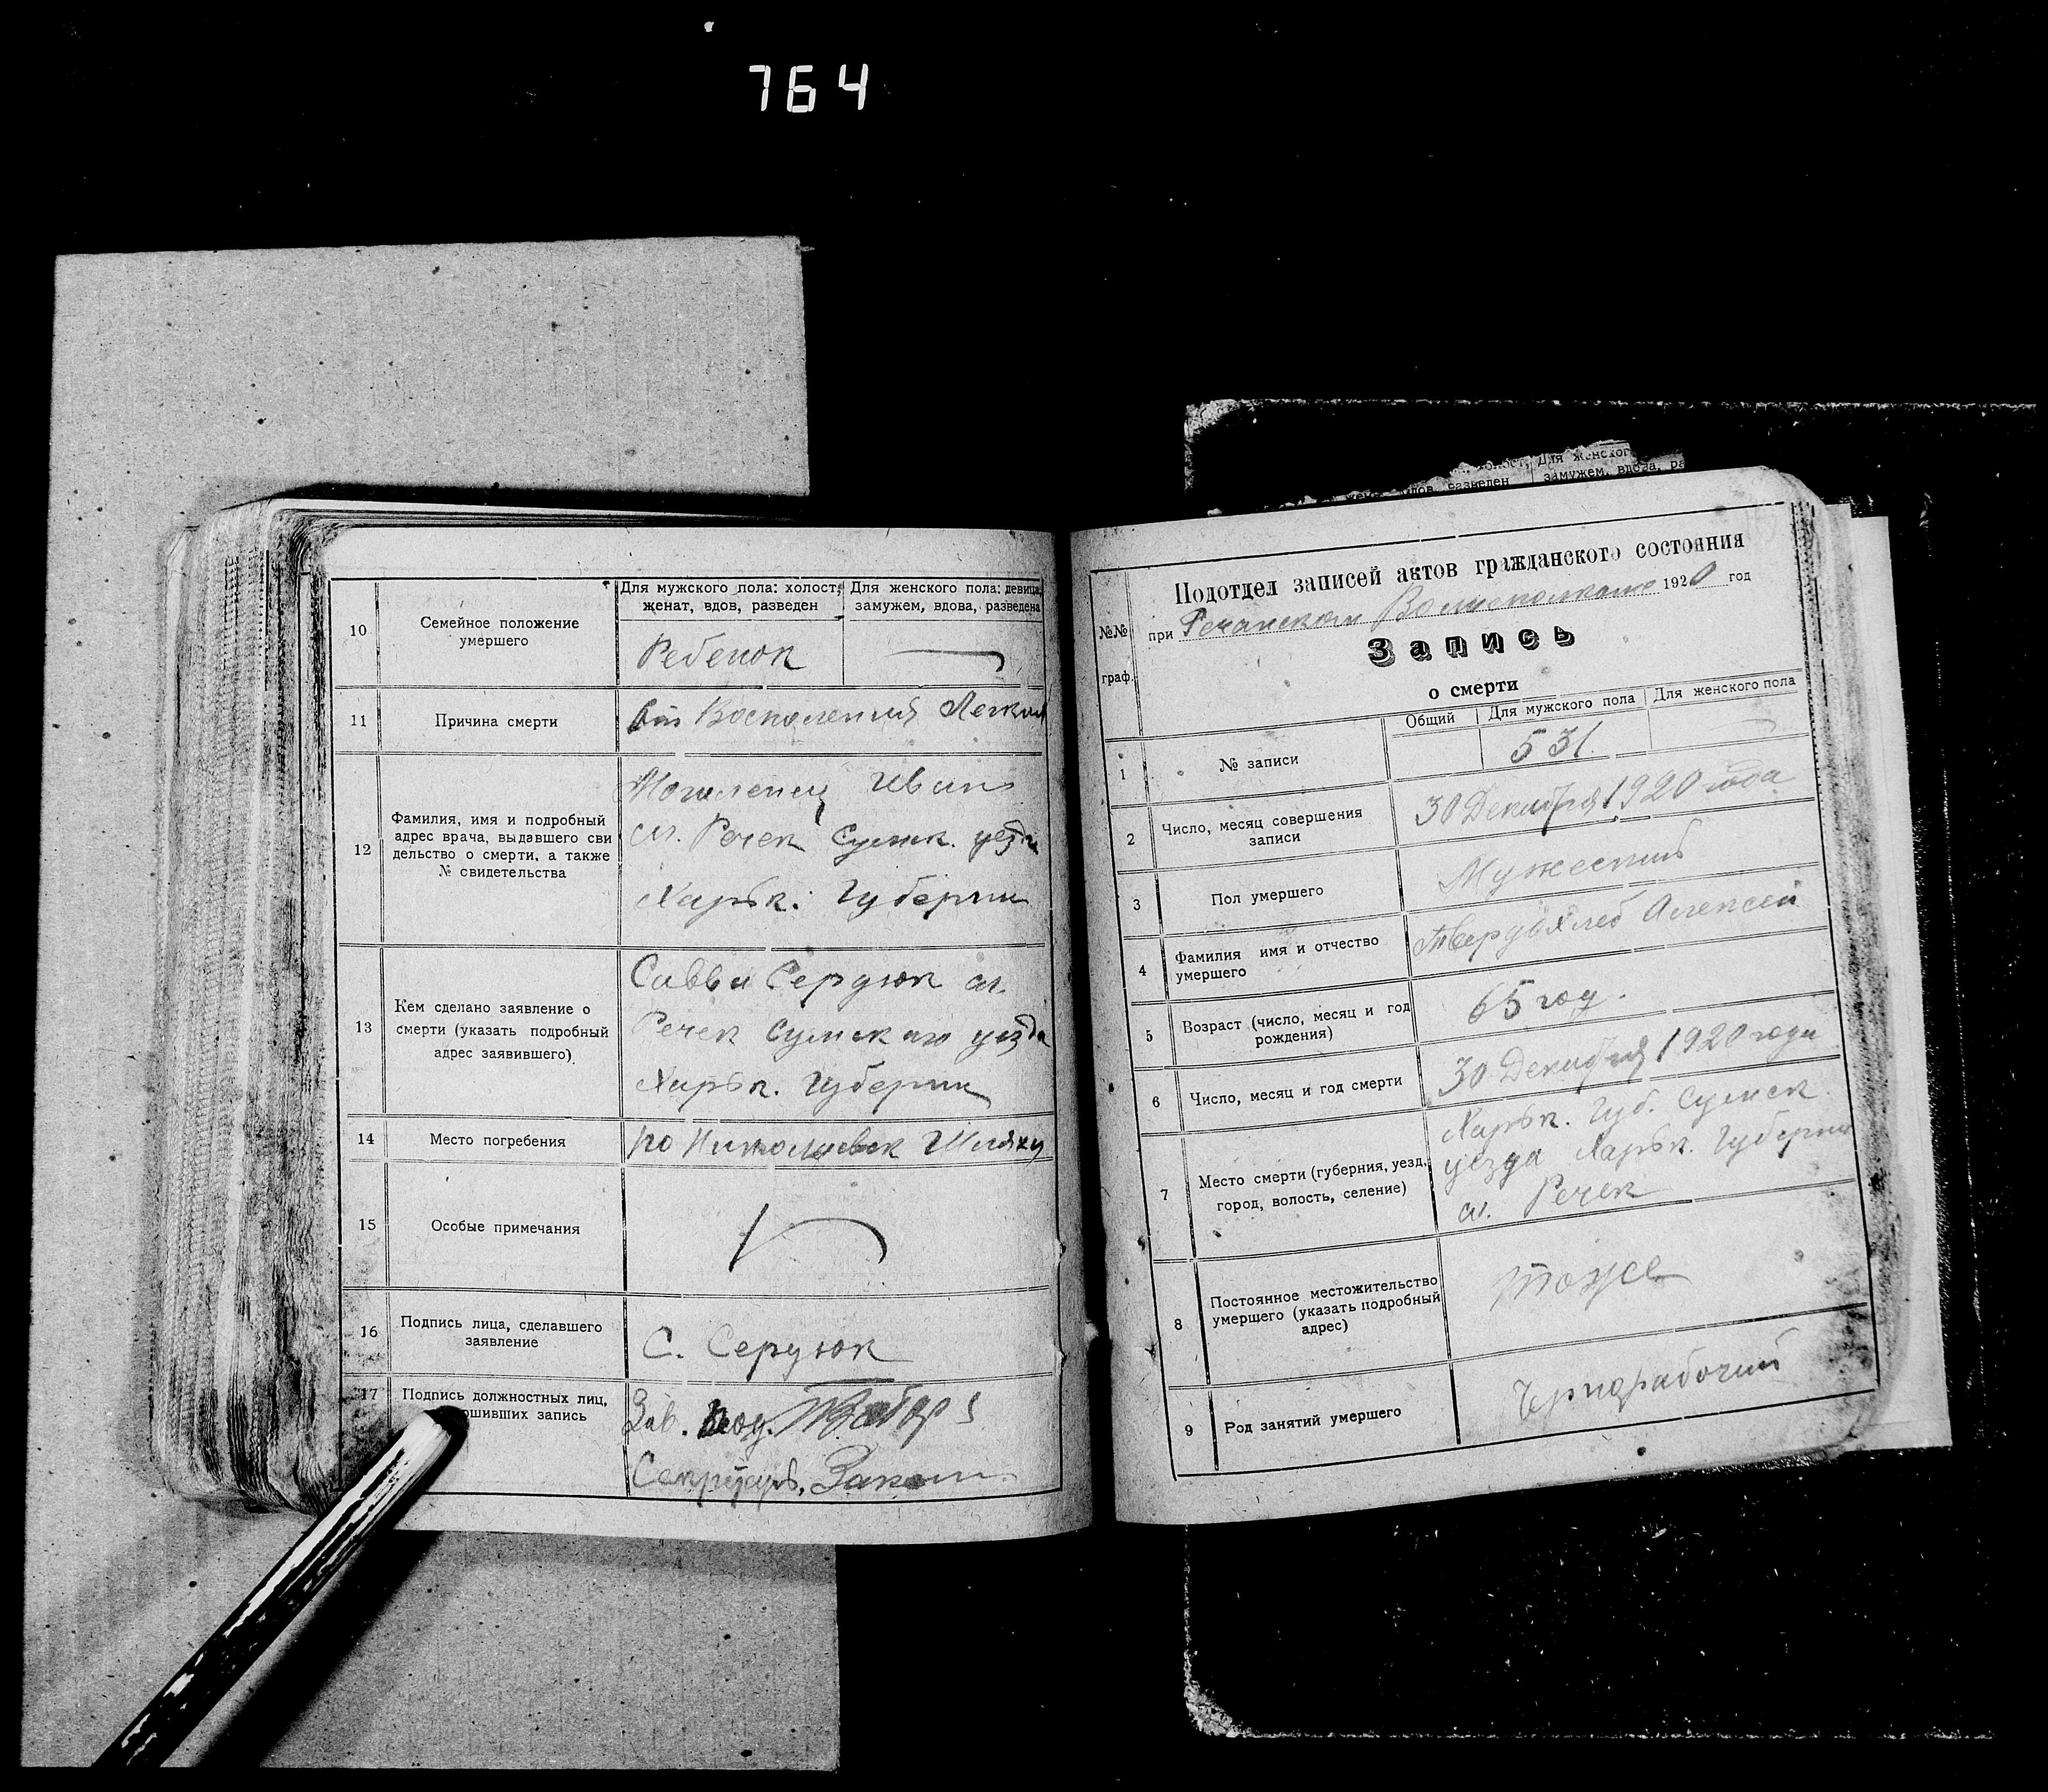 764
10
Семейное положение
умершего
Для мужского пола: холост,
женат, вдов, разведен
Для женского пола: девица,
замужем, вдова, разведена
Ребенок
11
Причина смерти
От Воспаления Легких
12
Фамилия, имя и подробный
адрес врача, выдавшего сви
детельство о смерти, а также
№ свидетельства
Иван
сл. Речек Сумск. уезда
Харьк. Губернии
13
Кем сделано заявление о
смерти (указать подробный
адрес заявившего)
Савва Сердюк сл.
Речек Сумскаго уезда
Харьк. Губернии
14
Место погребения
по Николаевск Шляху
15
Особые примечания
16
Подпись лица, сделавшего
заявление
С. Сердюк
17
Подпись должностных лиц,
ршивших запись
Зав. под.
Секретарь
Для женского
замужем, вдова, ра
вдов, разведен
№№
граф.
Подотдел записей актов гражданского состояния
при Речанском Волисполкоме 1920 год
Запись
о смерти
Общий
Для мужского пола
Для женского пола
1
№ записи
531.
2
Число, месяц совершения
записи
30 Декабря 1920 года
3
Пол умершего
Мужеский
4
Фамилия имя и отчество
умершего
Твердохлеб Алексей
5
Возраст (число, месяц и год
рождения)
65 год.
6
Число, месяц и год смерти
30 Декабря 1920 года
7
Место смерти (губерния, уезд,
город, волость, селение)
Харьк. Губ. Сумск.
уезда Харьк. Губернии
сл. Речек
8
Постоянное местожительство
умершего (указать подробный
адрес)
тоже
9
Род занятий умершего
Чернорабочий